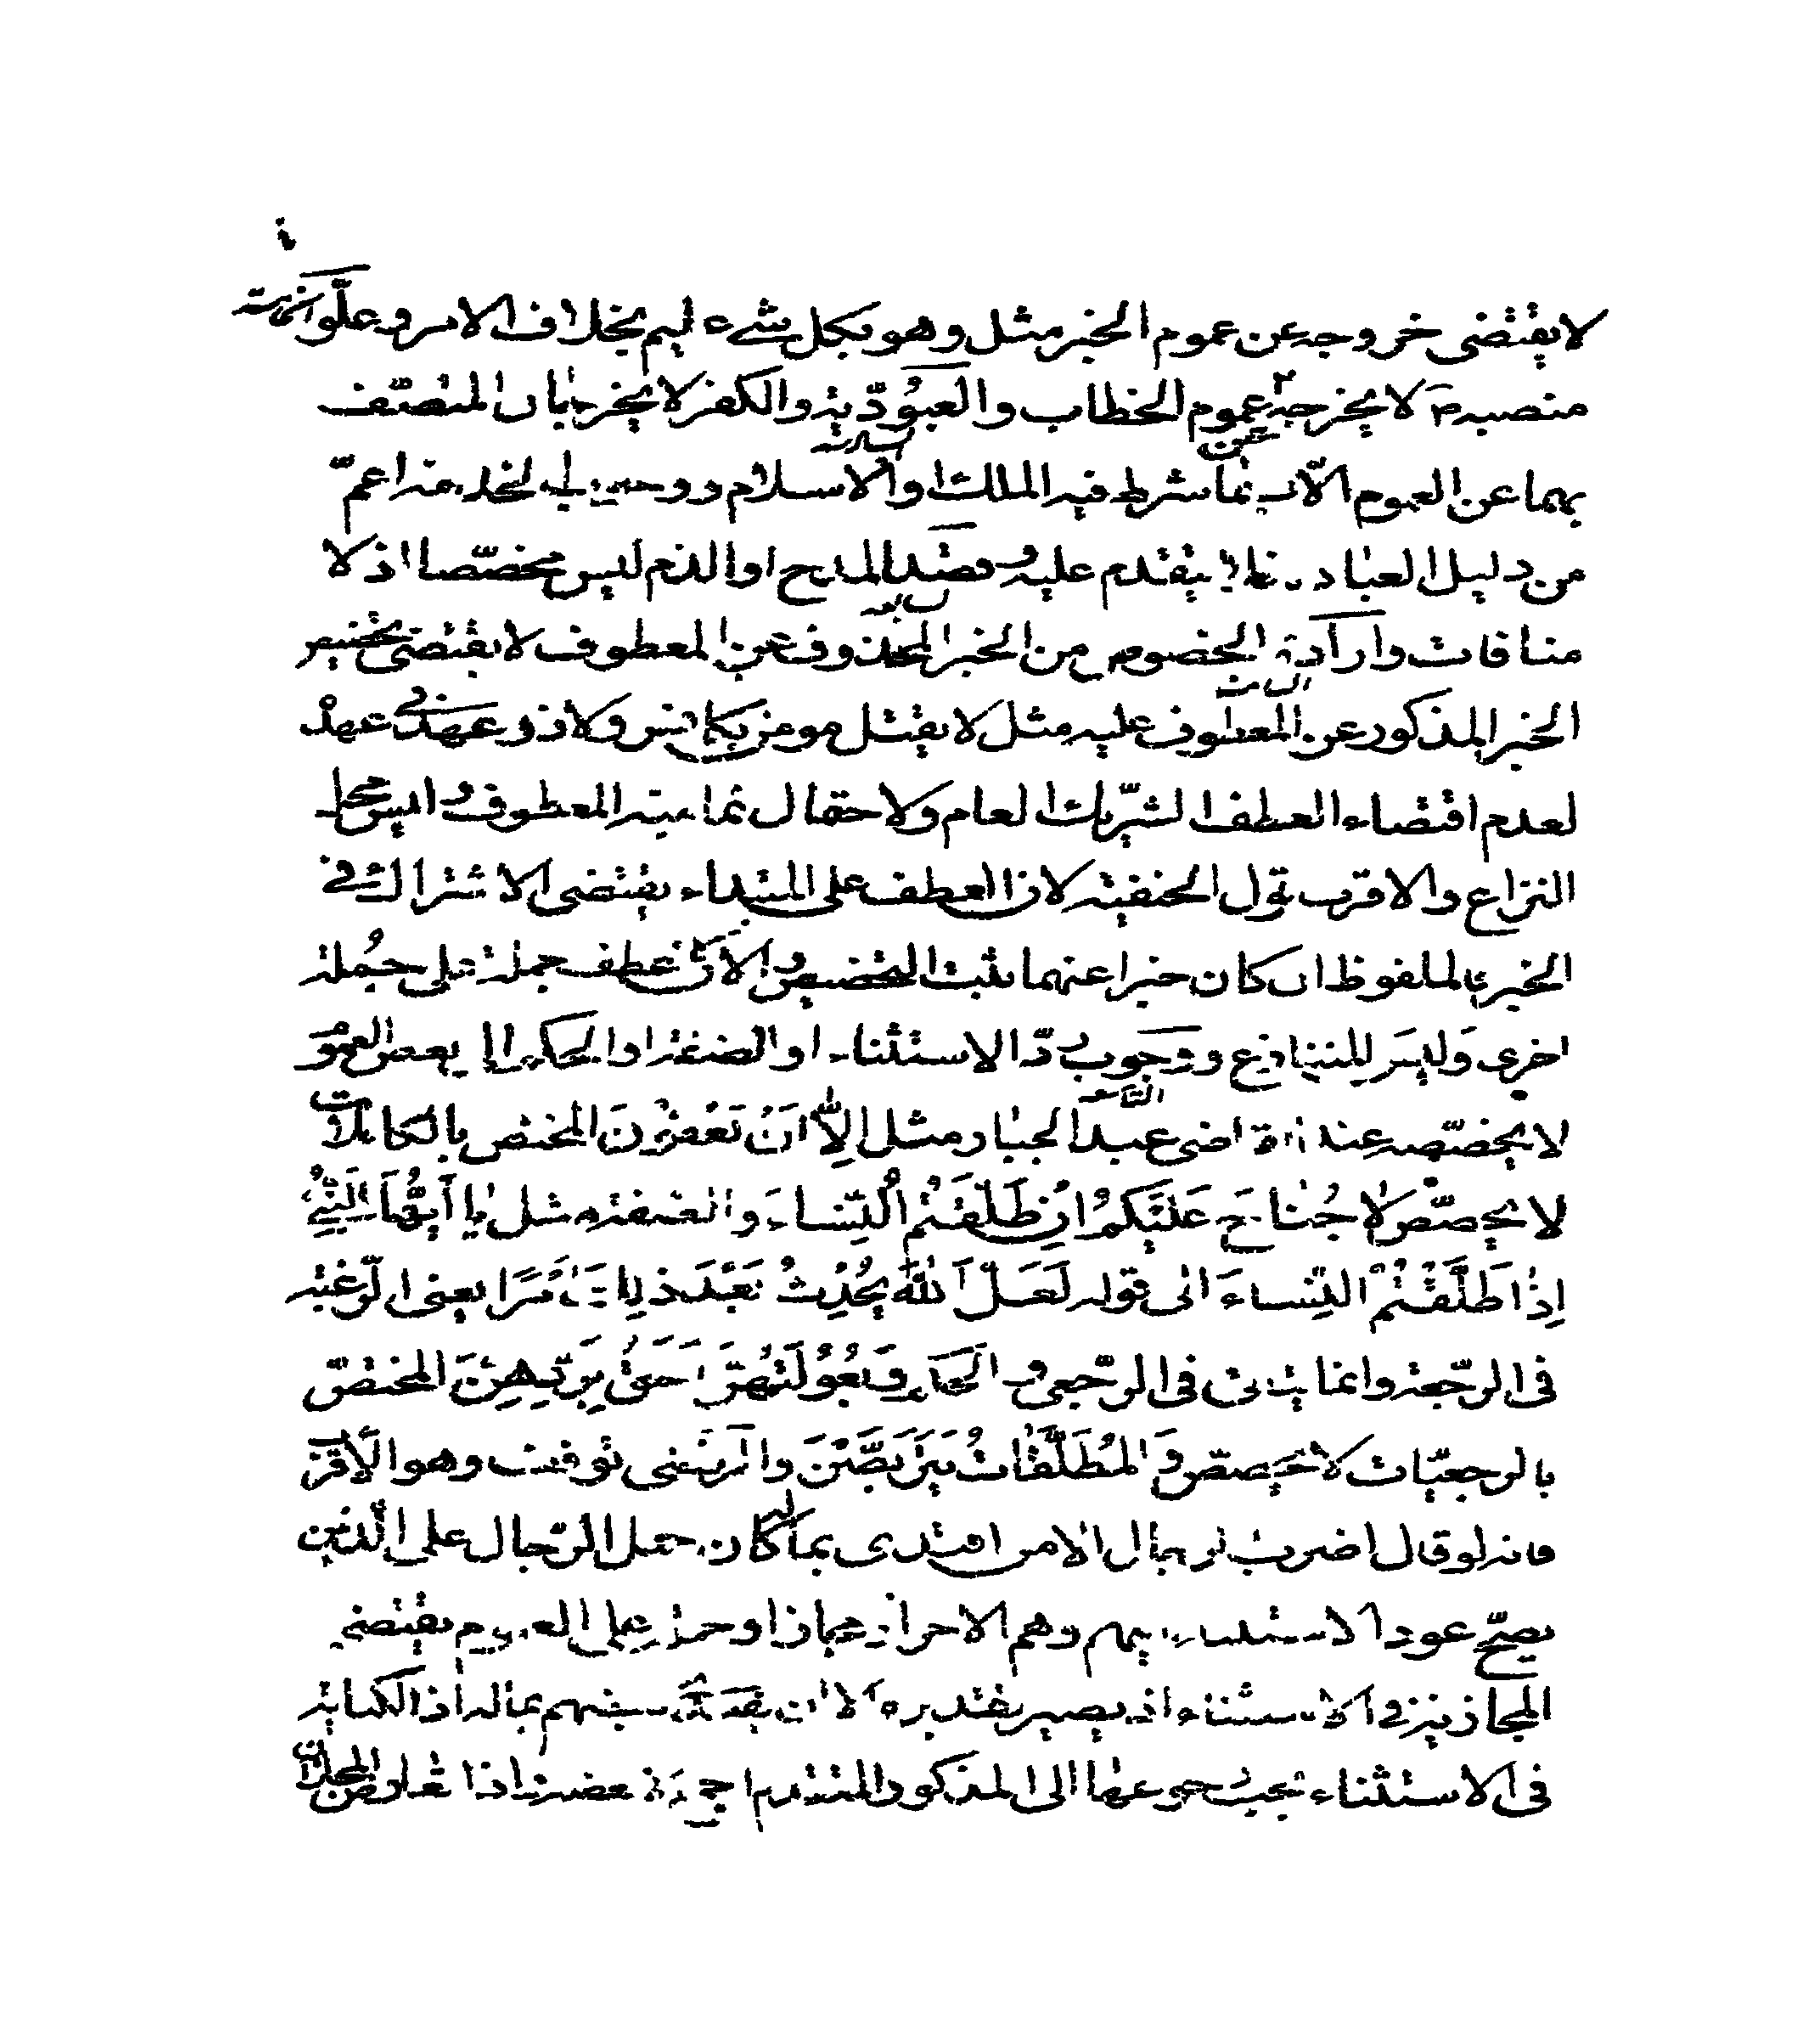 لا يقتضى خروجه عن عموم الخبر مثل وهو بكل شىء عليم بخلاف الامر وعلّو
منصبه ص لا يخرجه عن عموم الخطاب والعبوديّة والكفر لا يخرجان المتصف
بهما عن العموم الّا فيما شرط فيه الملك او الاسلام و اعمّ
من دليل العبادة يتقدم عليه وقصد المدح او الذم ليس مخصّصا اذ لا
منافات وارادة الخصوص من الخبر المحذوف عن المعطوف لا يقتضى تخصيص
الخبر المذكور عن المعطوف عليه مثل لا يقتل مومن بكافر ولا ذو عهد فى عهده
لعدم اقتضاء العطف الشّريك العام ولاحتمال تمامية المعطوف وليس محل
النزاع والاقرب قول الحنفية لان العطف على المبتداء يقتضى الاشتراك فى
الخبر فالملفوظ ان كان خبرا عنهما ثبت التخصيص والا كان عطف جملة على جملة
اخرى وليس المتنازع ووجوب ردّ الاستثناء او الصفة او الحكم الى بعض العمو
لا يخصّصه عند القاضى عبد الجبار مثل اِلّا اَنْ يَعْفُونَ المختص بالكاملات
لا يخصّص لا جُناحَ عَلَيْكُمْ اِنْ طَلَّقْتُمُ النِّساءَ والصفة مثل يا اَيُّهَا النَّبِىُّ
اِذا طَلَّقْتُمُ النِّساءَ الى قوله لَعَلَّ اللّٰهَ يُحْدِثُ بَعْدَ ذلِكَ اَمْرًا يعنى الرّغبة
فى الرّجعة وانما يتاتى فى الرّجعى والحكم وَبُعُولَتُهُنَّ اَحَقُّ بِرَدِّهِنَّ المختصّ
بالرجعيّات لا يخصص وَالمُطَلَّقاتُ يَتَرَبَّصْنَ والمرتضى توقف وهو الاقرب
فانه لو قال اضرب الرجال الامن افتدى بماله كان حمل الرّجال على الّذين
يصحّ عود الاستثناء اليهم وهم الاحرار مجازا وحمله على العموم يقتضى
المجاز فى الاستثناء اذ يصير تقديره الا ان يفتدى بعضهم بماله اذ الكناية
فى الاستثناء يجب رجوعها الى المذكور المتقدم اذا تعارض المجازان